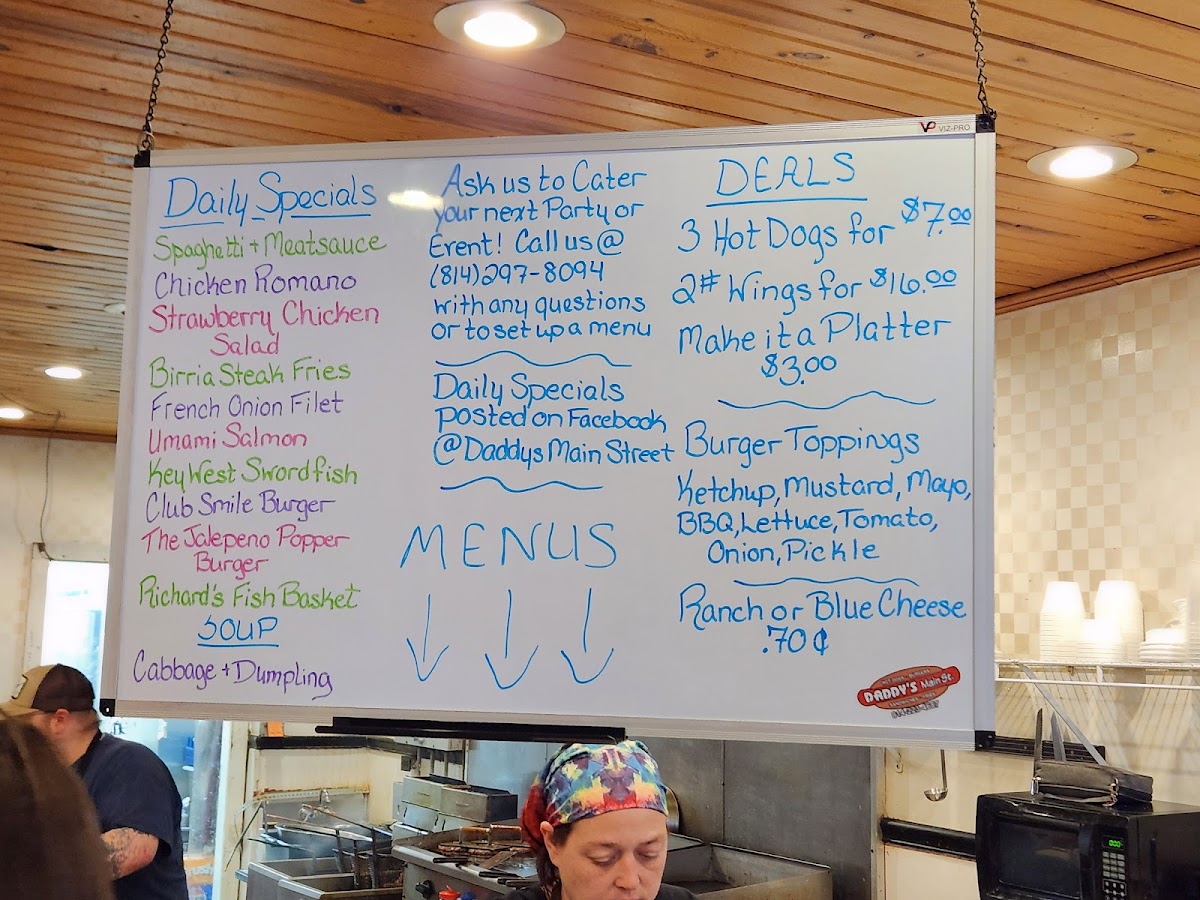 VP VIZ-PRO
Daily Specials
Spaghetti + Meatsauce
Chicken Romano
Strawberry Chicken
Salad
Birria Steak Fries
French Onion Filet
Umami Salmon
Key West Swordfish
Club Smile Burger
The Jalepeno Popper
Burger
Richard's Fish Basket
SOUP
Cabbage + Dumpling
Ask us to Cater
your next Party or
Event! Call us @
(814)297-8094
with any questions
or to set up a menu
Daily Specials
posted on Facebook
@Daddys Main Street
MENUS
DEALS
3 Hot Dogs for $7.00
2# Wings for $16.00
Make it a Platter
$3.00
Burger Toppings
Ketchup, Mustard, Mayo,
BBQ, Lettuce, Tomato,
Onion, Pickle
Ranch or Blue Cheese
.70¢
DADDY'S Main St.